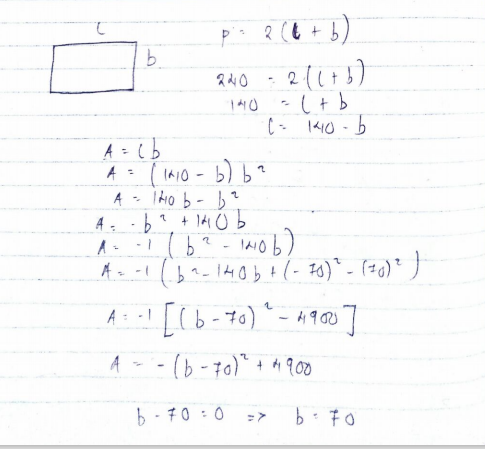 l
b
P = 2(l + b)
240 = 2(l + b)
140 = l + b
l = 140 - b
A = lb
A = (140 - b) b²
A = 140b - b²
A = -b² + 140b
A = -1 (b² - 140b)
A = -1 (b² - 140b + (-70)² - (70)²)
A = -1 [(b - 70)² - 4900]
A = -(b - 70)² + 4900
b - 70 = 0 => b = 70